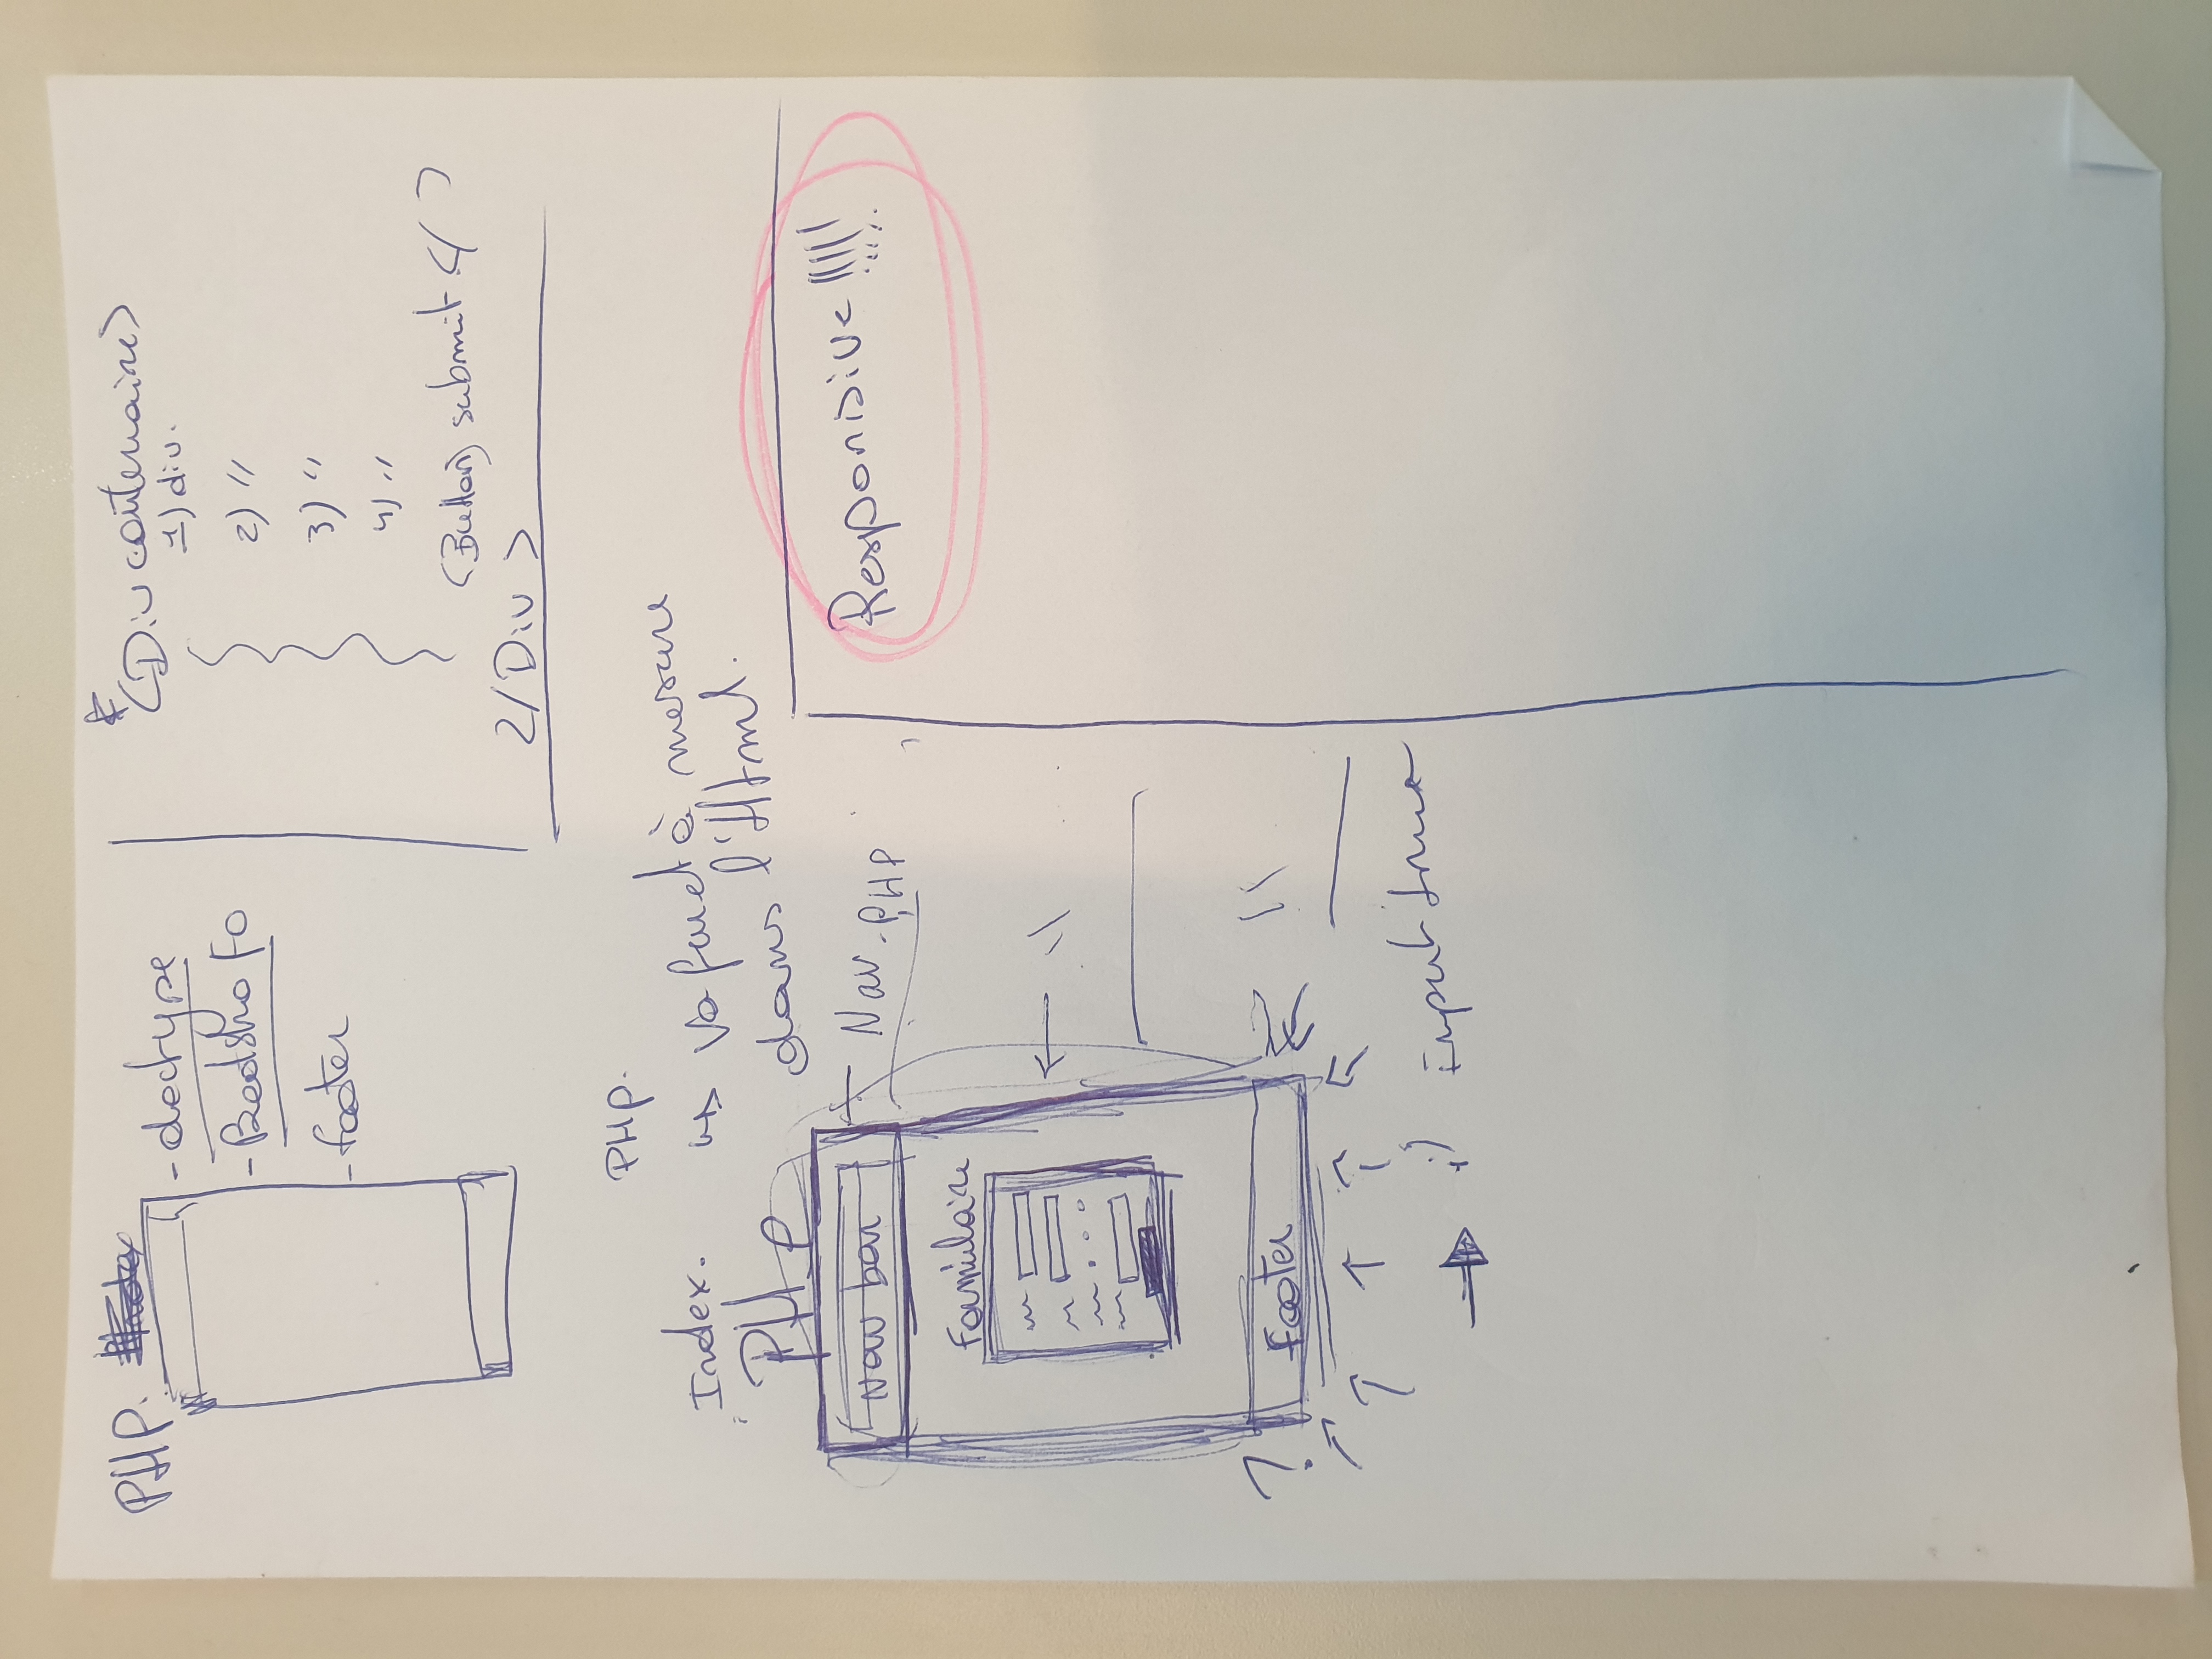 PHP.
- doctype
- Bootstra fo
- footer
<Div contenaire>
1) div.
2) "
3) "
4) "
<Button> submit </ >
</Div >
PHP.
Index.
PHP
↳ Va fur et à mesure
dans l'Html.
Nav bar
Nav.PHP
Formulaire
\\
?
footer
\\
Input
Responsive !!!!!